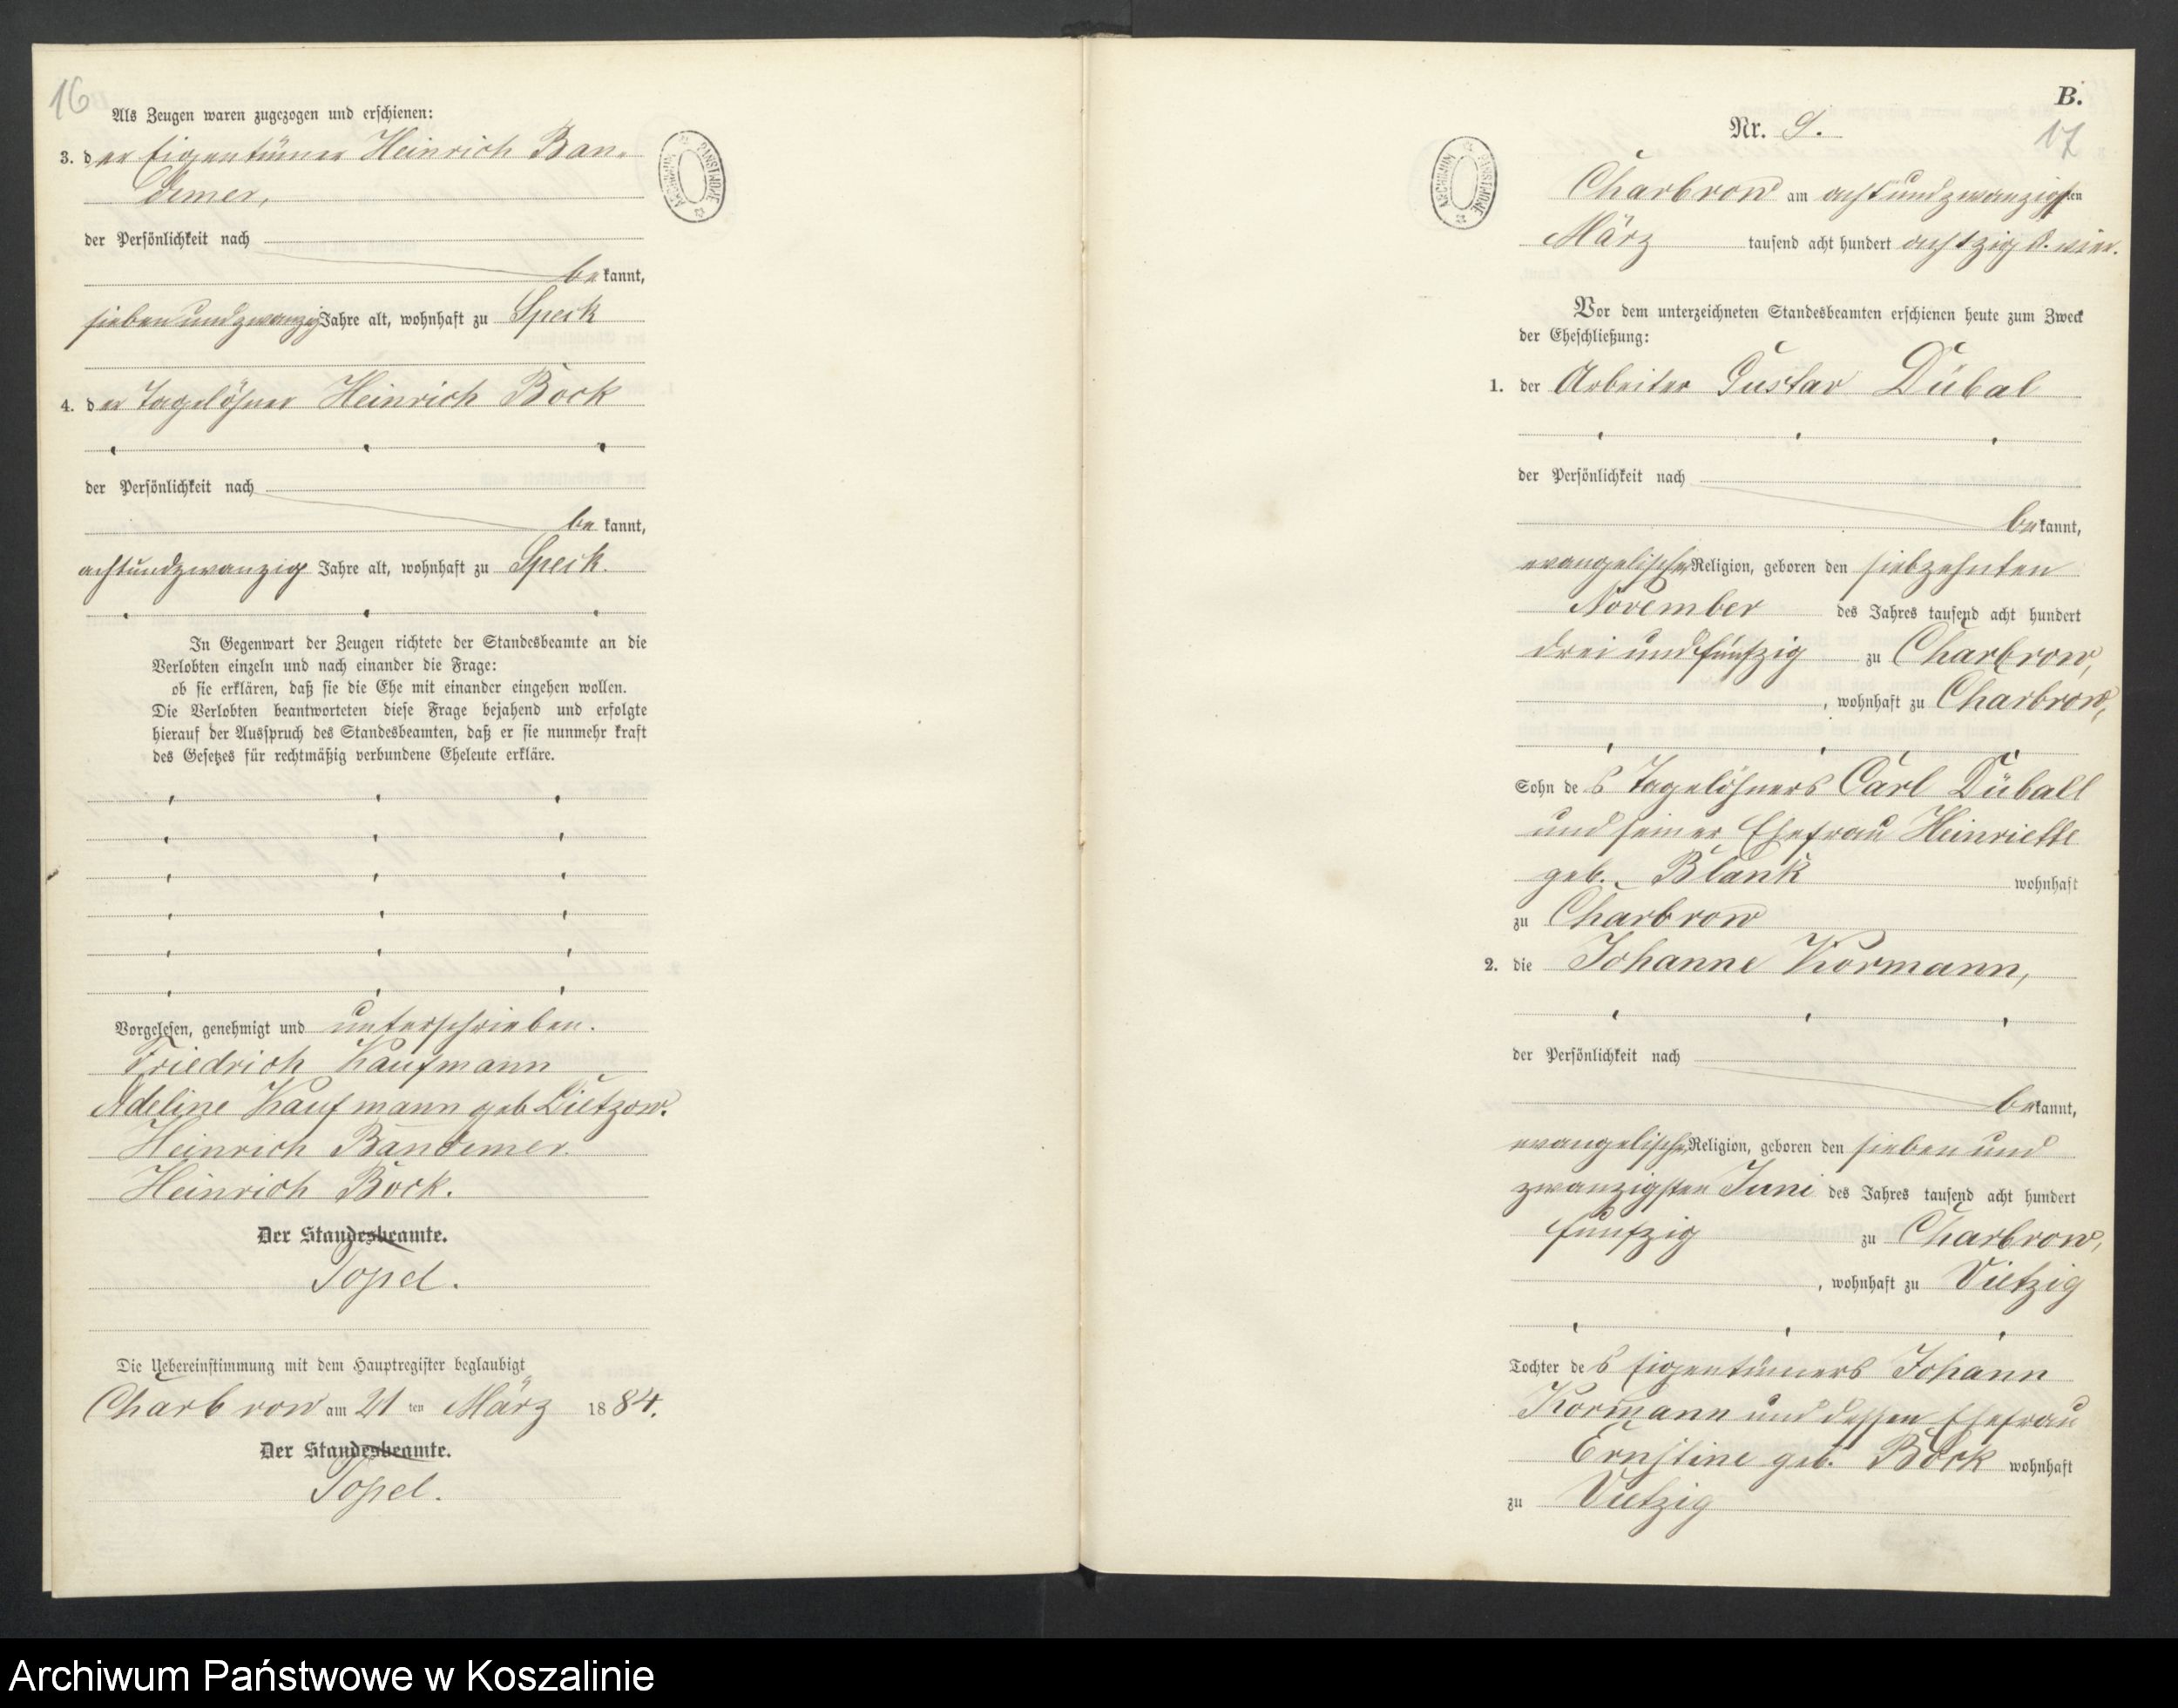 16
Als Zeugen waren zugezogen und erschienen:
3. der Eigentümer Heinrich Ban-
demer,
der Persönlichkeit nach
bekannt,
siebenundzwanzig Jahre alt, wohnhaft zu Speck
4. der Tagelöhner Heinrich Bock
der Persönlichkeit nach
be kannt,
achtundzwanzig Jahre alt, wohnhaft zu Speck.
In Gegenwart der Zeugen richtete der Standesbeamte an die
Verlobten einzeln und nach einander die Frage:
ob sie erklären, daß sie die Ehe mit einander eingehen wollen.
Die Verlobten beantworteten diese Frage bejahend und erfolgte
hierauf der Ausspruch des Standesbeamten, daß er sie nunmehr kraft
des Gesetzes für rechtmäßig verbundene Eheleute erkläre.
Vorgelesen, genehmigt und unterschrieben.
Friedrich Kaufmann
Adeline Kaufmann geb Dietzow.
Heinrich Bandemer.
Heinrich Bock.
Der Standesbeamte.
Topel.
Die Uebereinstimmung mit dem Hauptregister beglaubigt
Charbrow am 21 ten März 1884.
Der Standesbeamte.
Topel.
ARCHIWUM PAŃSTWOWE
B.
17
Nr. 9.
ARCHIWUM PAŃSTWOWE
Charbrow am achtundzwanzigsten
März tausend acht hundert achtzig u. vier.
Vor dem unterzeichneten Standesbeamten erschienen heute zum Zweck
der Eheschließung:
1. der Arbeiter Gustav Dübal
der Persönlichkeit nach
bekannt,
evangelischer Religion, geboren den siebzehnten
November des Jahres tausend acht hundert
drei und fünfzig zu Charbrow,
, wohnhaft zu Charbrow,
Sohn des Tagelöhners Carl Düball
und seiner Ehefrau Heinriette
geb. Blank wohnhaft
zu Charbrow
2. die Johanne Kormann,
der Persönlichkeit nach
bekannt,
evangelischer Religion, geboren den sieben und
zwanzigsten Juni des Jahres tausend acht hundert
fünfzig zu Charbrow,
, wohnhaft zu Vietzig
Tochter des Eigentümers Johann
Kormann und dessen Ehefrau
Ernstine geb. Bock wohnhaft
zu Vietzig
Archiwum Państwowe w Koszalinie